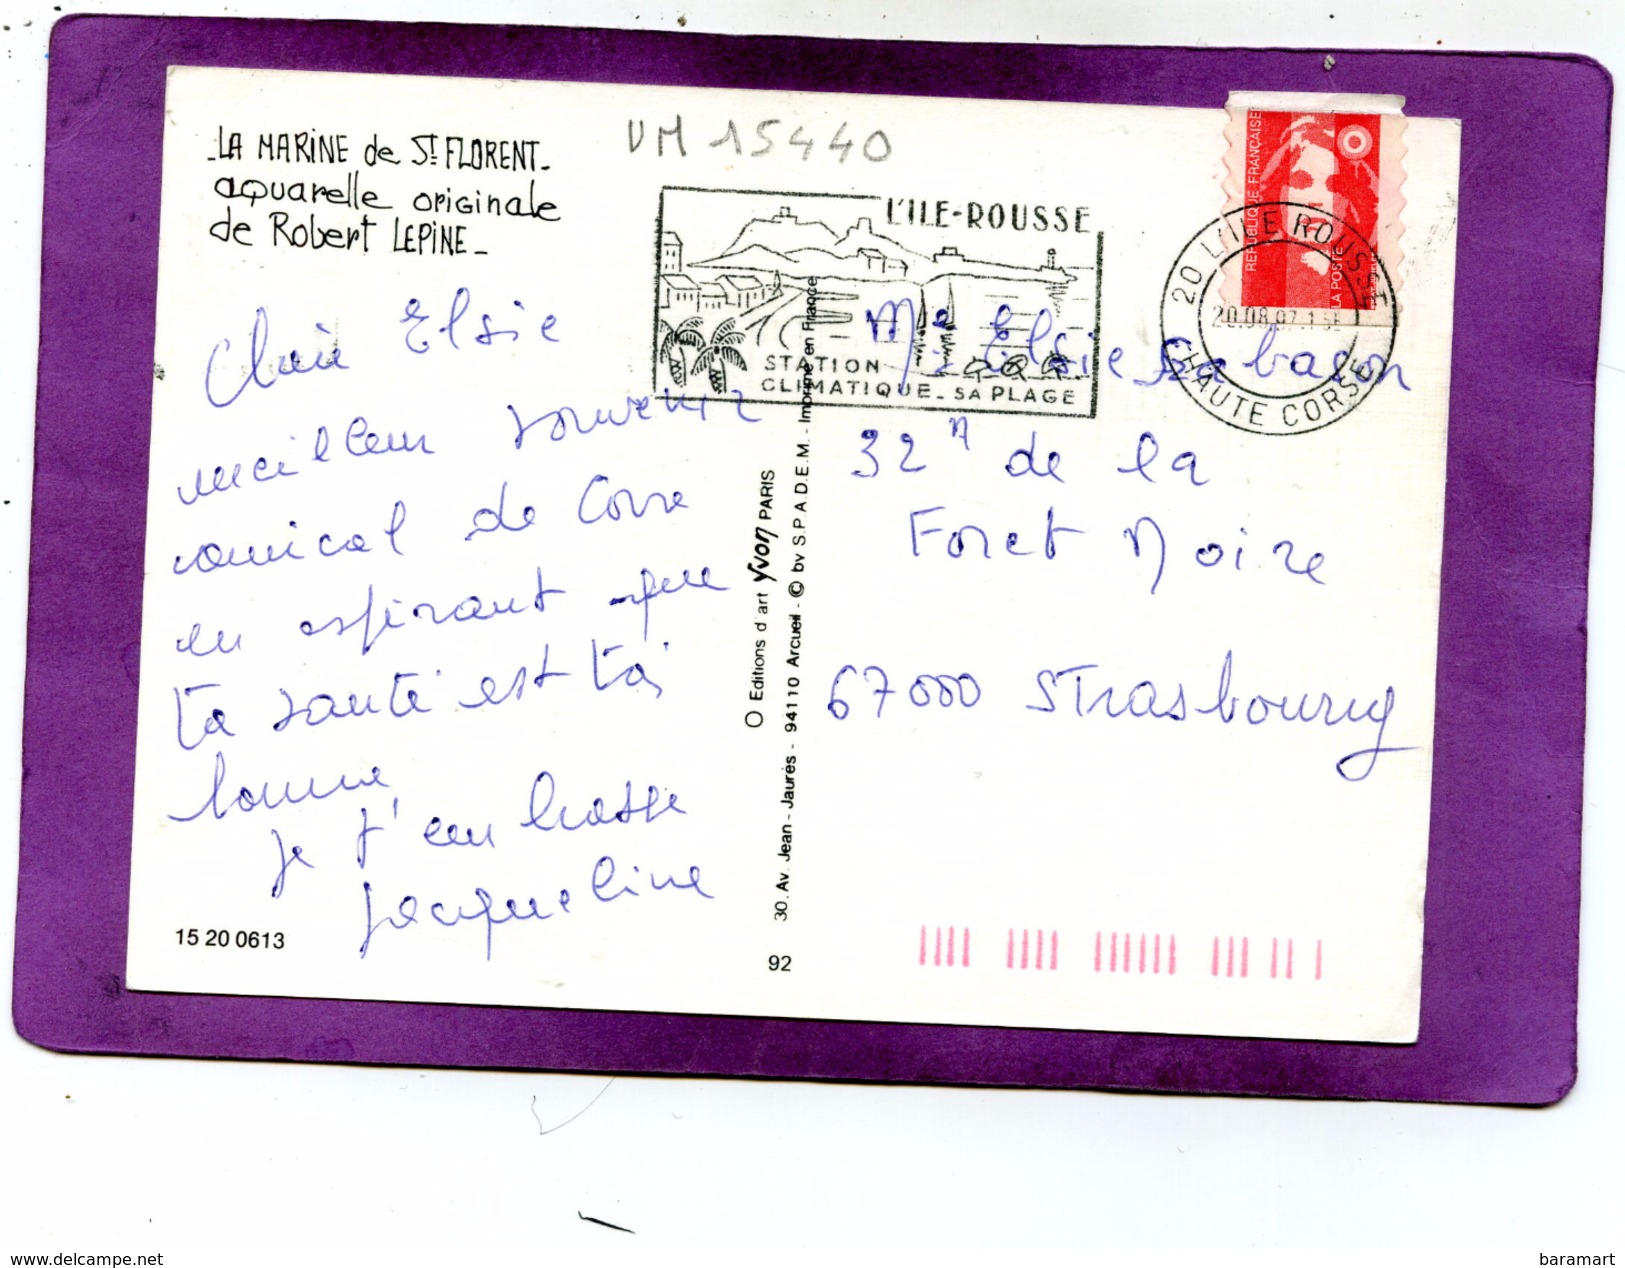 -LA MARINE de St FLORENT-
aquarelle originale
de Robert LEPINE-
VM 15440
L'ILE-ROUSSE
STATION
CLIMATIQUE - SA PLAGE
REPUBLIQUE FRANÇAISE
LA POSTE
20 L'ILE ROUSSE
20.08.97
HAUTE CORSE
Chère Elsie
meilleur souvenir
amical de Corse
en espérant que
ta santé est très
bonne
je t'embrasse
Jacqueline
Elsie
32 de la
Foret Noire
67000 Strasbourg
Editions d'art Yvon PARIS
30. Av. Jean - Jaurès - 94110 Arcueil - © by S.P.A.D.E.M. - Imprimé en France
15 20 0613
92
delcampe.net
baramart